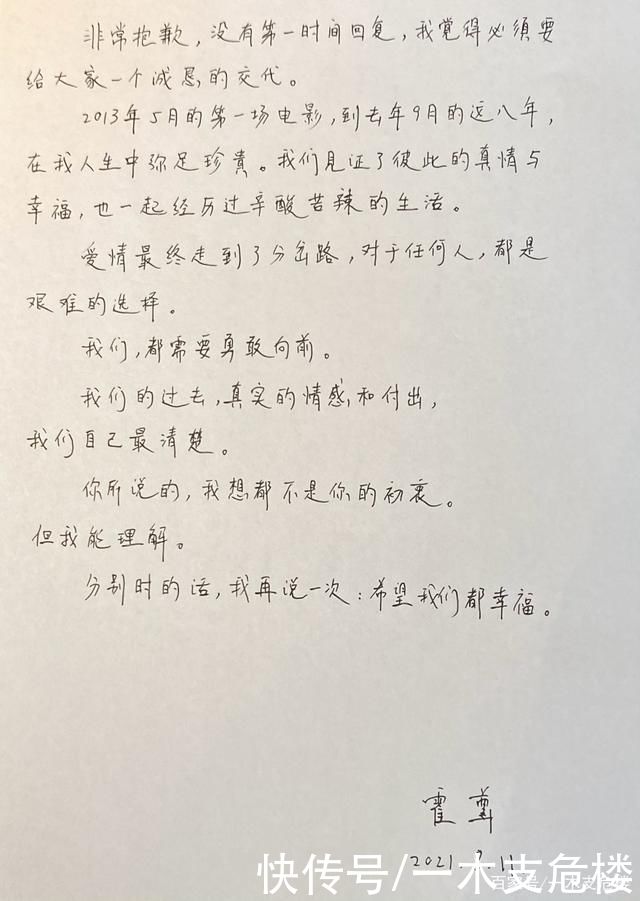 非常抱歉，没有第一时间回复，我觉得必须要
给大家一个诚恳的交代。
2013年5月的第一场电影，到去年9月的这八年，
在我人生中弥足珍贵。我们见证了彼此的真情与
幸福，也一起经历过辛酸苦辣的生活。
爱情最终走到了分岔路，对于任何人，都是
艰难的选择。
我们，都需要勇敢向前。
我们的过去，真实的情感和付出，
我们自己最清楚。
你所说的，我想都不是你的初衷。
但我能理解。
分别时的话，我再说一次：希望我们都幸福。
霍尊
2021. .11
快传号/一木支危楼
百家号/一木支危楼